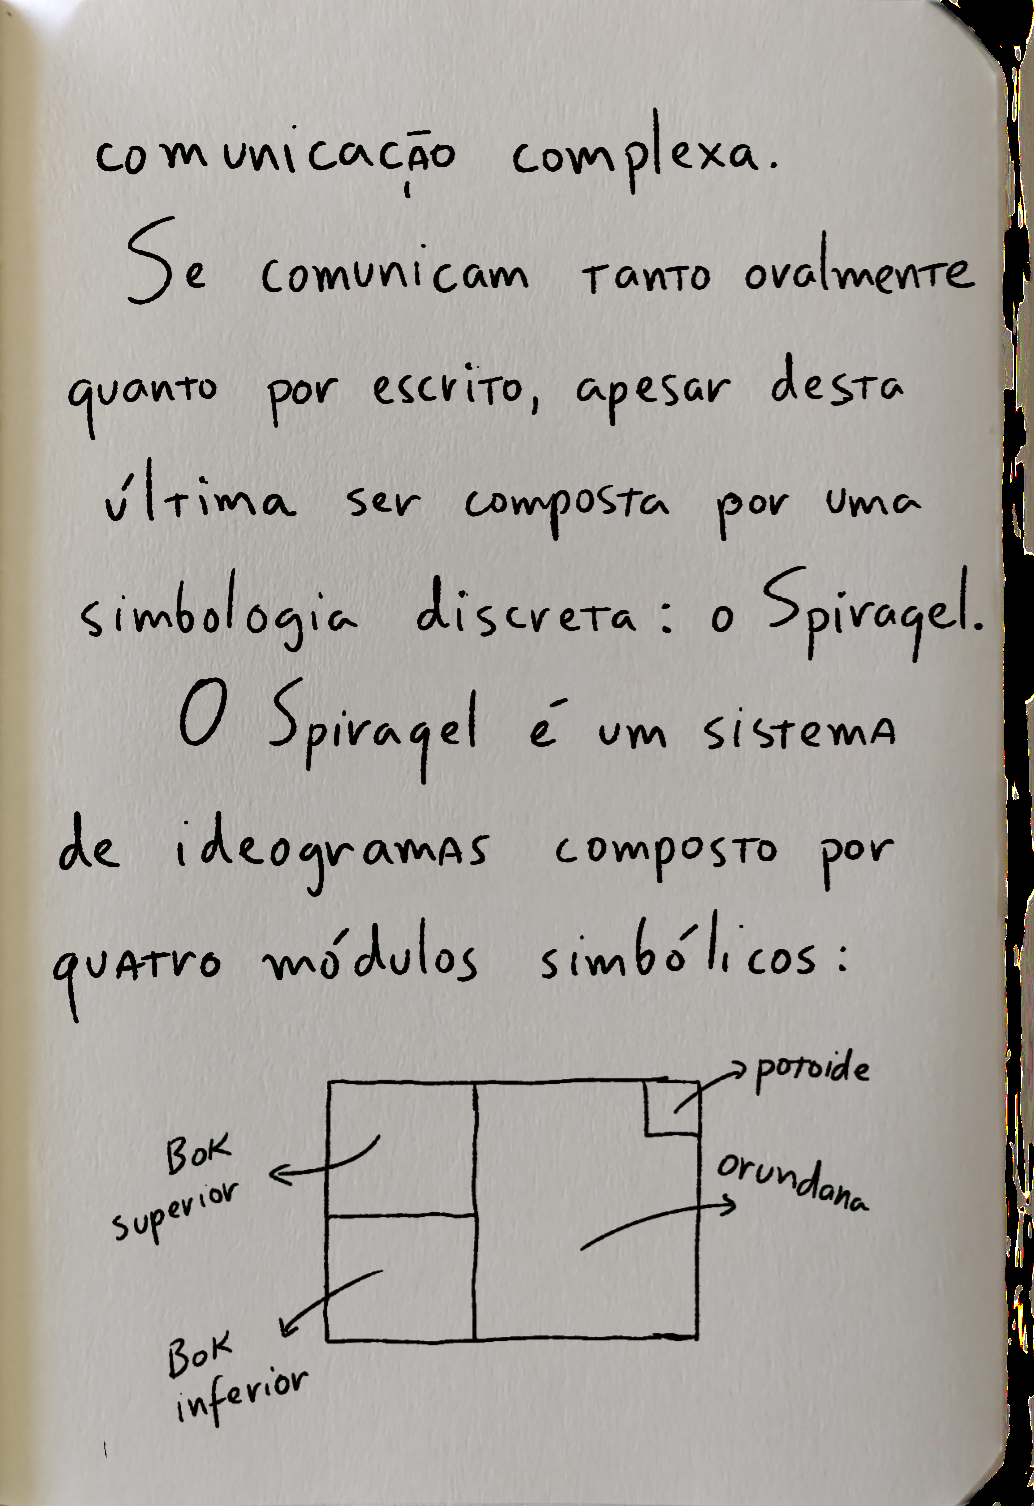 comunicação complexa.
Se comunicam tanto ovalmente
quanto por escrito, apesar desta
última ser composta por uma
simbologia discreta: o Spiraqel.
O Spiraqel é um sistema
de ideogramas composto por
quatro módulos simbólicos:
potoide
Bok
superior
orundana
Bok
inferior